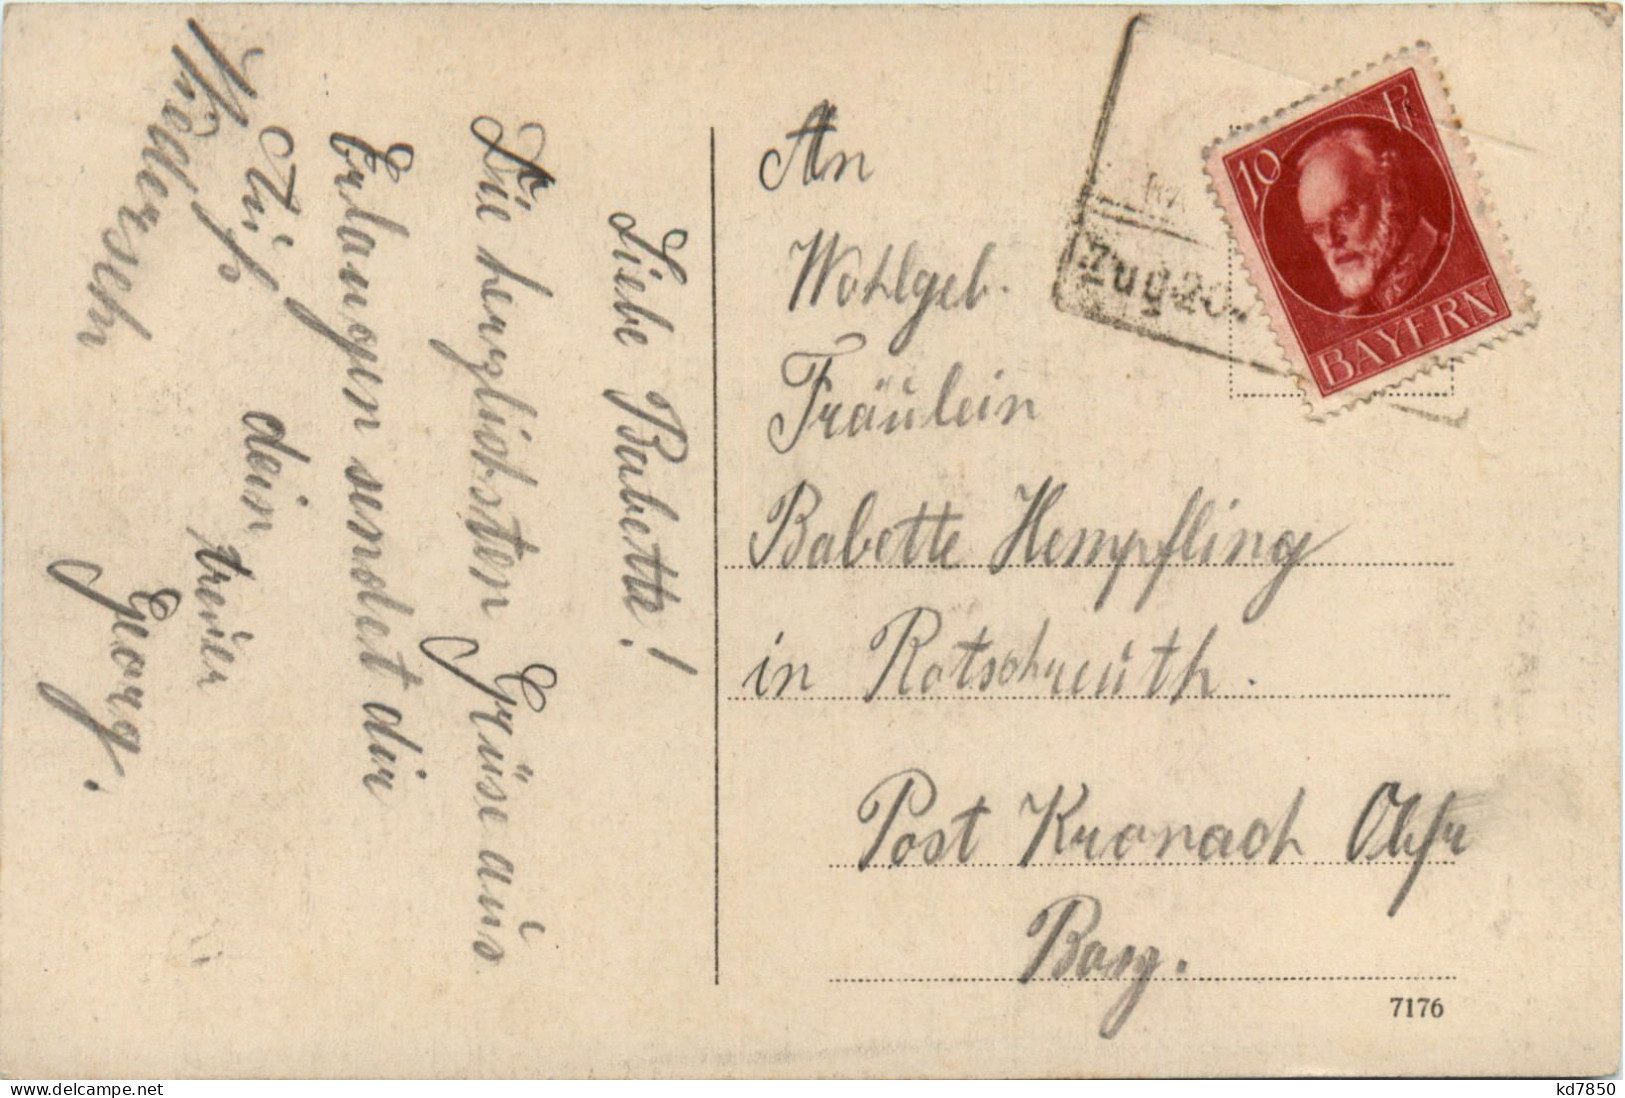 Liebe Babette!
Die herzlichsten Grüse aus
Erlangen sendet dir
dein
treuer
Georg.
Auf
Wiedersehn
An
Wohlgeb.
Fräulein
Babette Hempfling
in Rotschreuth.
Post Kronach Obfr
Bayr.
7176
10 Pf
BAYERN
Zug 20.
delcampe.net
kd7850